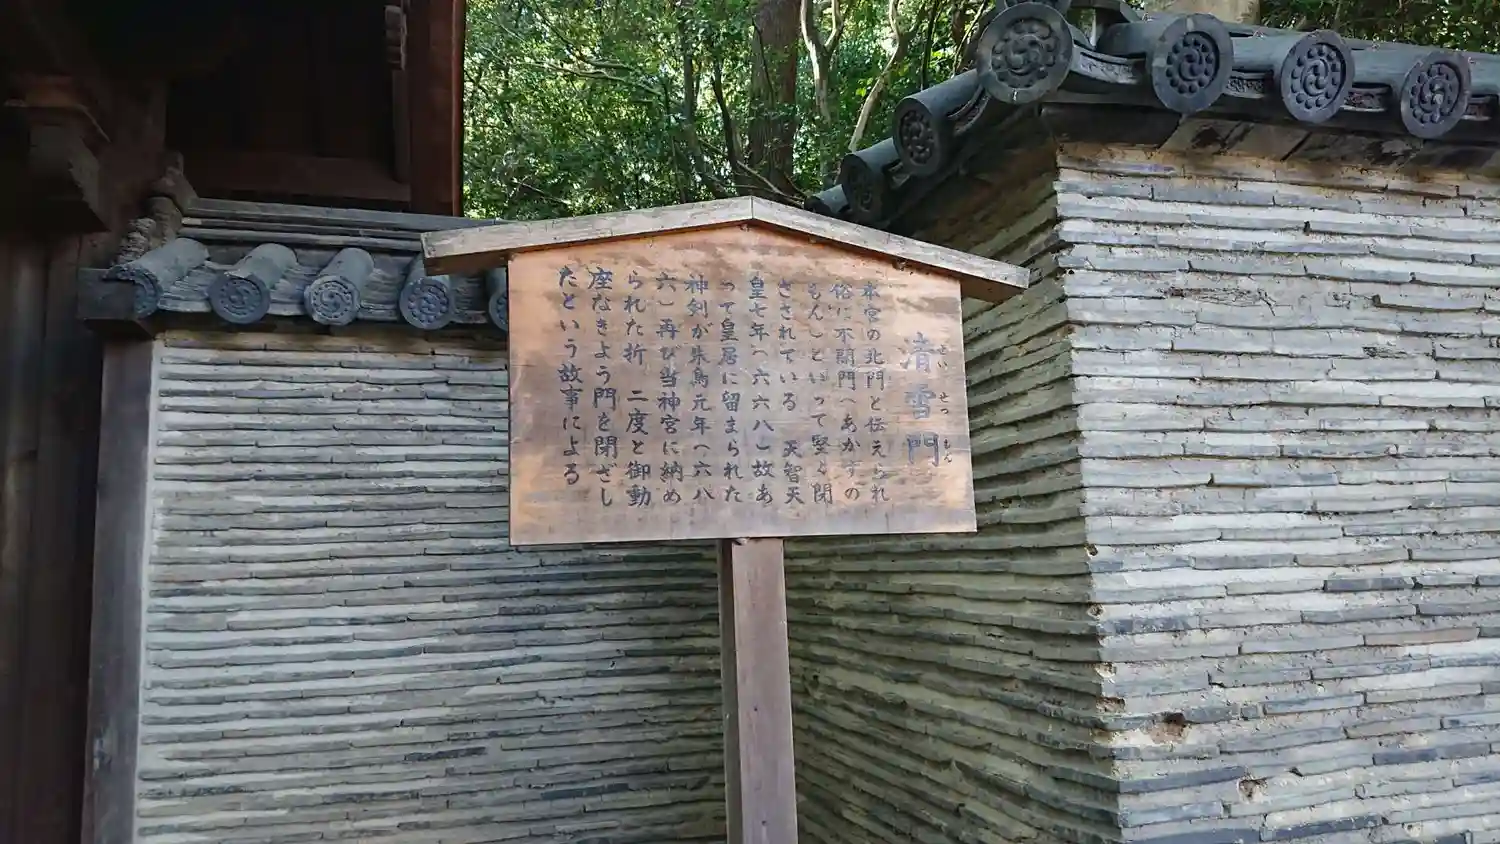 清雪門
せいせつもん
本宮の北門と伝えられ
俗に不開門（あかずの
もん）といって堅く閉
ざされている　天智天
皇七年（六六八）故あ
って皇居に留まられた
神剣が朱鳥元年（六八
六）再び当神宮に納め
られた折　二度と御動
座なきよう門を閉ざし
たという故事による